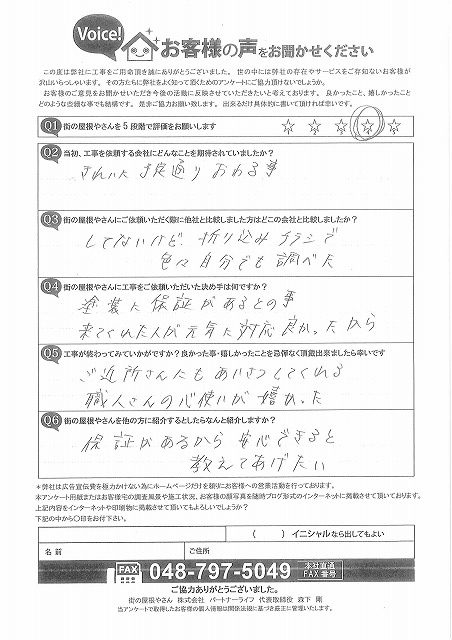 Voice!
お客様の声をお聞かせください
この度は弊社に工事をご用命頂き誠にありがとうございました。世の中には弊社の存在やサービスをご存知ないお客様が
沢山いらっしゃいます。その方たちに弊社をよく知って頂くためのアンケートにご協力頂けないでしょうか。
お客様のご意見をお聞かせいただき今後の活動に反映させていただきたいと考えております。良かったこと、嬉しかったこと
どのような些細な事でも結構です。是非ご協力お願い致します。出来るだけ具体的に書いて頂ければ幸いです。
Q1 街の屋根やさんを5段階で評価をお願いします ☆ ☆ ☆ ☆ ☆
Q2 当初、工事を依頼する会社にどんなことを期待されていましたか?
きれいに予定通りおわる事
Q3 街の屋根やさんにご依頼いただく際に他社と比較しました方はどこの会社と比較しましたか?
してないけど、折り込みチラシで
色々自分でも調べた
Q4 街の屋根やさんに工事をご依頼いただいた決め手は何ですか?
塗装に保証があるとの事
来てくれた人が元気に対応良かったから
Q5 工事が終わってみていかがですか?良かった事・嬉しかったことを忌憚なく頂戴出来ましたら幸いです
ご近所さんにもあいさつしてくれる
職人さんの心使いが嬉かった
Q6 街の屋根やさんを他の方に紹介するとしたらなんと紹介しますか?
保証があるから安心できると
教えてあげたい
*弊社は広告宣伝費を極力かけない為にホームページだけを頼りにお客様への営業活動を行っております。
本アンケート用紙またはお客様宅の調査風景や施工状況、お客様の顔写真を随時ブログ形式のインターネットに掲載させて頂いております。
上記内容をインターネットや印刷物に掲載させて頂いてもよろしいでしょうか?
下記の中から○印をお付下さい。
( )イニシャルなら出してもよい
名前
ご住所
FAX 048-797-5049 本社直通 FAX番号
ご協力ありがとうございました。
街の屋根やさん 株式会社 パートナーライフ 代表取締役 森下 剛
当アンケートで取得したお客様の個人情報は関係法規に基づき厳正に管理いたします。